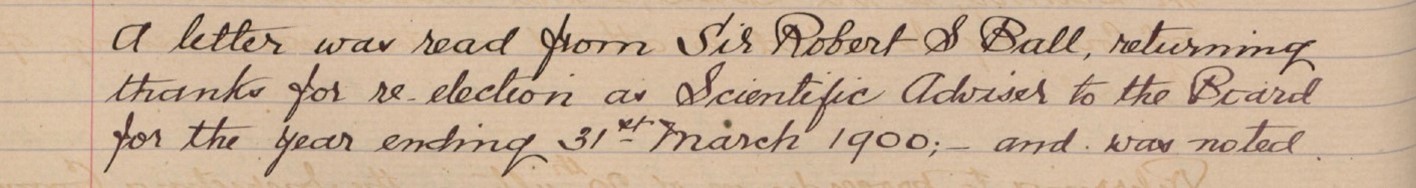 A letter was read from Sir Robert S Ball, returning
thanks for re-election as Scientific Adviser to the Board
for the year ending 31st March 1900;- and was noted.